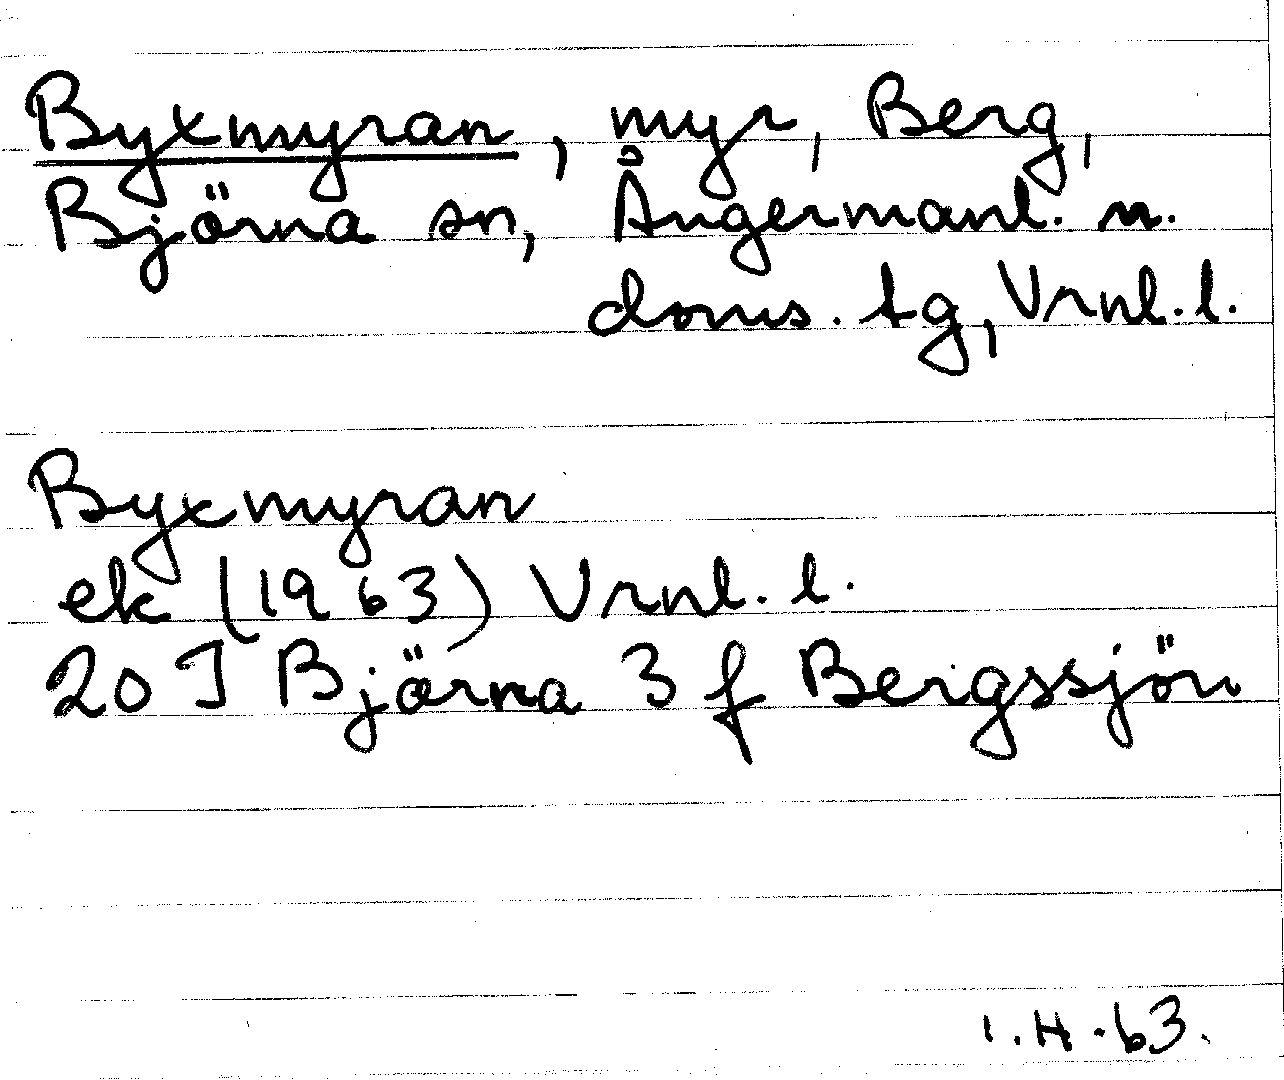 Byxmyran, myr, Berg,
Björna sn, Ångermanl. n.
doms. tg, Vrnl. l.
Byxmyran
ek (1963) Vrnl. l.
20 J Björna 3 f Bergssjön
I.H-63.